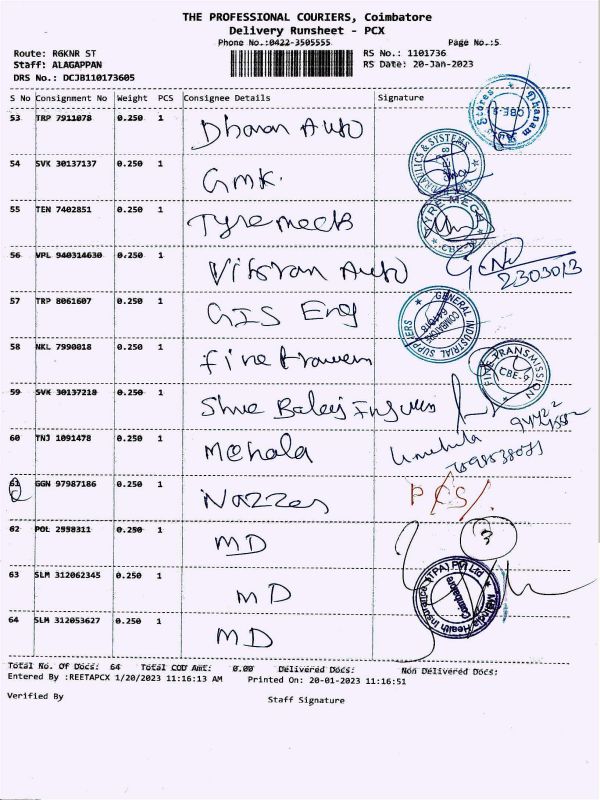 THE PROFESSIONAL COURIERS, Coimbatore
Delivery Runsheet - PCX
Phone No.:0422-3505555 Page No.:5
Route: RGKNR ST RS No.: 1101736
Staff: ALAGAPPAN RS Date: 20-Jan-2023
DRS No.: DCJB110173605
S No Consignment No Weight PCS Consignee Details Signature
53 TRP 7911078 0.250 1 Dhanam Auto
Dhanam Auto Stores CBE-9
54 SVK 30137137 0.250 1 GMK.
& SYSTEMS
55 TEN 7402851 0.250 1 Tyre
TYRE MEGA CBE-9
56 VPL 940314630 0.250 1 Auto
57 TRP 8061607 0.250 1 GIS Eng
GENERAL INDUSTRIAL SUPPLIERS COIMBATORE
58 NKL 7990018 0.250 1 Fine
FINE TRANSMISSION CBE-9
59 SVK 30137218 0.250 1 Shree Balaji
60 TNJ 1091478 0.250 1 Mehala
61 GGN 97987186 0.250 1 Nazzes
62 POL 2558311 0.250 1 MD
63 SLM 312062345 0.250 1 MD
Health Insurance TPA Pvt Ltd Coimbatore
64 SLM 312053627 0.250 1 MD
Total No. Of Docs: 64 Total COD Amt: 0.00 Delivered Docs: Non Delivered Docs:
Entered By :REETAPCX 1/20/2023 11:16:13 AM Printed On: 20-01-2023 11:16:51
Verified By Staff Signature